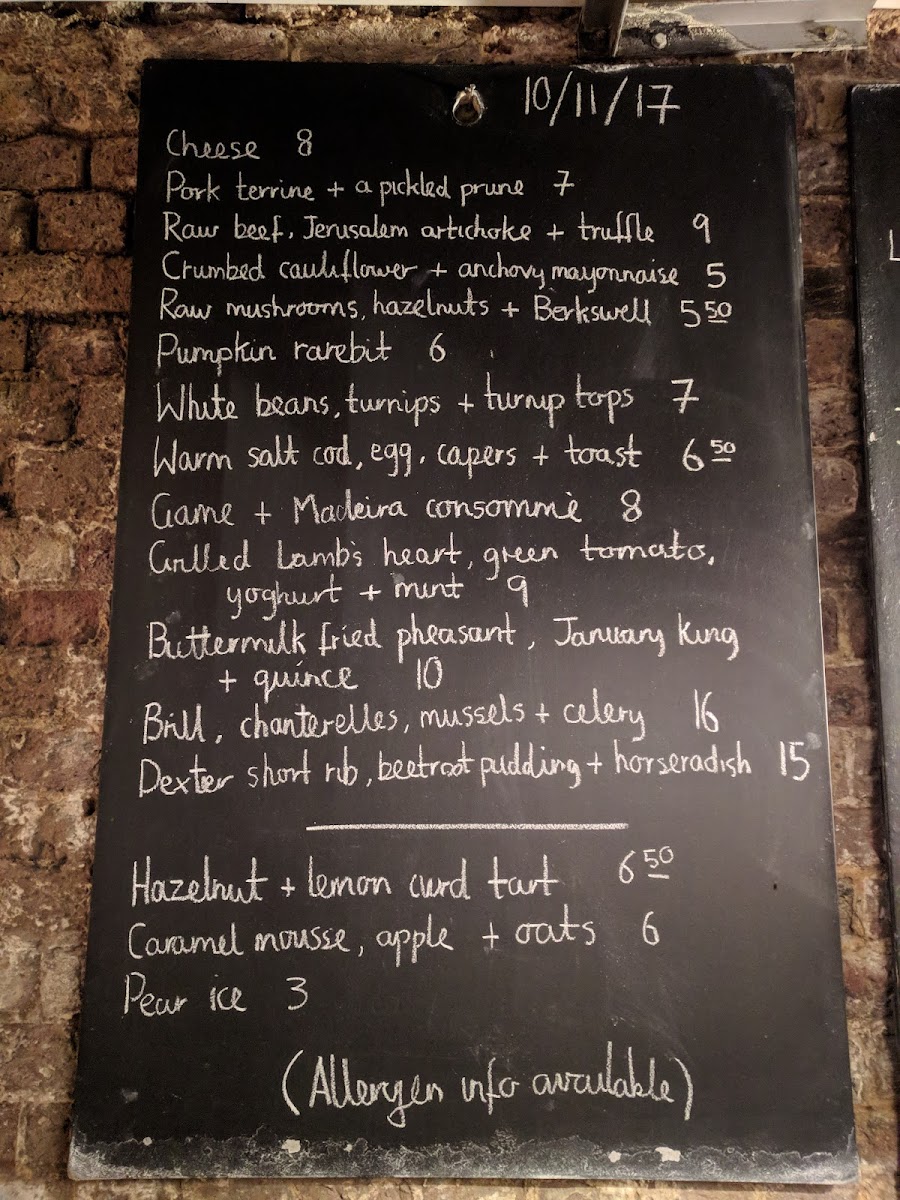 10/11/17
Cheese 8
Pork terrine + a pickled prune 7
Raw beef, Jerusalem artichoke + truffle 9
Crumbed cauliflower + anchovy mayonnaise 5
Raw mushrooms, hazelnuts + Berkswell 5 50
Pumpkin rarebit 6
White beans, turnips + turnip tops 7
Warm salt cod, egg, capers + toast 6 50
Game + Madeira consommè 8
Grilled Lamb's heart, green tomato,
yoghurt + mint 9
Buttermilk fried pheasant, January King
+ quince 10
Brill, chanterelles, mussels + celery 16
Dexter short rib, beetroot pudding + horseradish 15
Hazelnut + lemon curd tart 6 50
Caramel mousse, apple + oats 6
Pear ice 3
(Allergen info available)